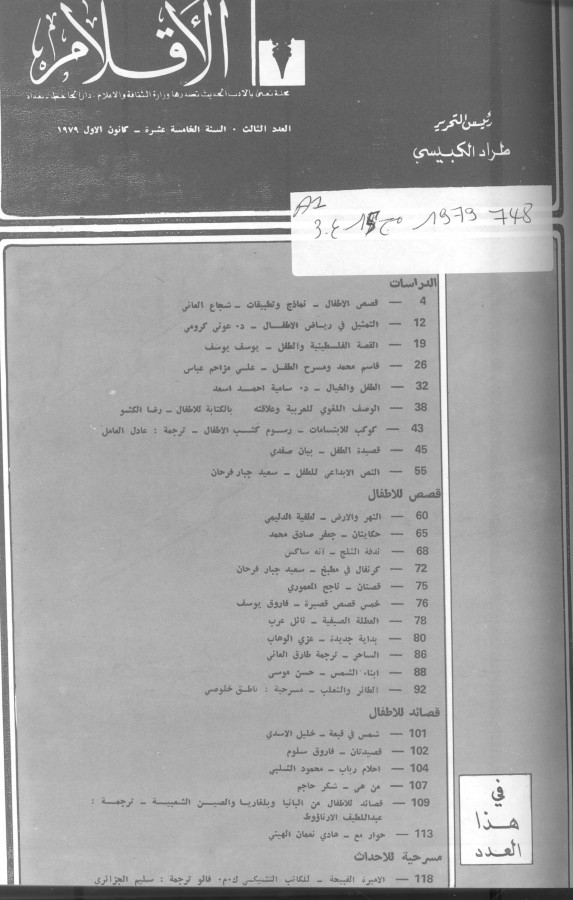 الأقلام
مجلة تعنى بالأدب الحديث تصدرها وزارة الثقافة والاعلام. دار الجاحظ. بغداد
العدد الثالث . السنة الخامسة عشرة ـ كانون الاول ١٩٧٩
رئيس التحرير
طراد الكبيسي
A1
1979 748
الدراسات
4 — قصص الاطفال ـ نماذج وتطبيقات ـ شجاع العاني
12 — التمثيل في رياض الاطفال ـ د. عوني كرومي
19 — القصة الفلسطينية والطفل ـ يوسف يوسف
26 — قاسم محمد ومسرح الطفل ـ علي مزاحم عباس
32 — الطفل والخيال ـ د. سامية احمد اسعد
38 — الوصف اللغوي للعربية وعلاقته بالكتابة للاطفال ـ رضا الكشو
43 — كوكب للابتسامات ـ رسوم كتب الاطفال ـ ترجمة : عادل العامل
45 — قصيدة الطفل ـ بيان صفدي
55 — النص الابداعي للطفل ـ سعيد جبار فرحان
قصص للاطفال
60 — النهر والارض ـ لطفية الدليمي
65 — حكايتان ـ جعفر صادق محمد
68 — ندفة الثلج ـ آنه ساكس
72 — كرنفال في مطبخ ـ سعيد جبار فرحان
75 — قصتان ـ ناجح المعموري
76 — خمس قصص قصيرة ـ فاروق يوسف
78 — العطلة الصيفية ـ نائل عرب
80 — بداية جديدة ـ عزي الوهاب
86 — الساحر ـ ترجمة طارق العاني
88 — ابناء الشمس ـ حسن موسى
92 — الطائر والثعلب ـ مسرحية : ناطق خلوصي
قصائد للاطفال
101 — شمس في قبعة ـ خليل الاسدي
102 — قصيدتان ـ فاروق سلوم
104 — احلام رباب ـ محمود الشلبي
107 — من هي ـ شكر حاجم
109 — قصائد للاطفال من البانيا وبلغاريا والصين الشعبية ـ ترجمة :
عبداللطيف الارناؤوط
113 — حوار مع ـ هادي نعمان الهيتي
مسرحية للاحداث
118 — الاميرة القبيحة ـ للكاتب التشيكي ك.م. فالو ترجمة : سليم الجزائري
في
هذا
العدد